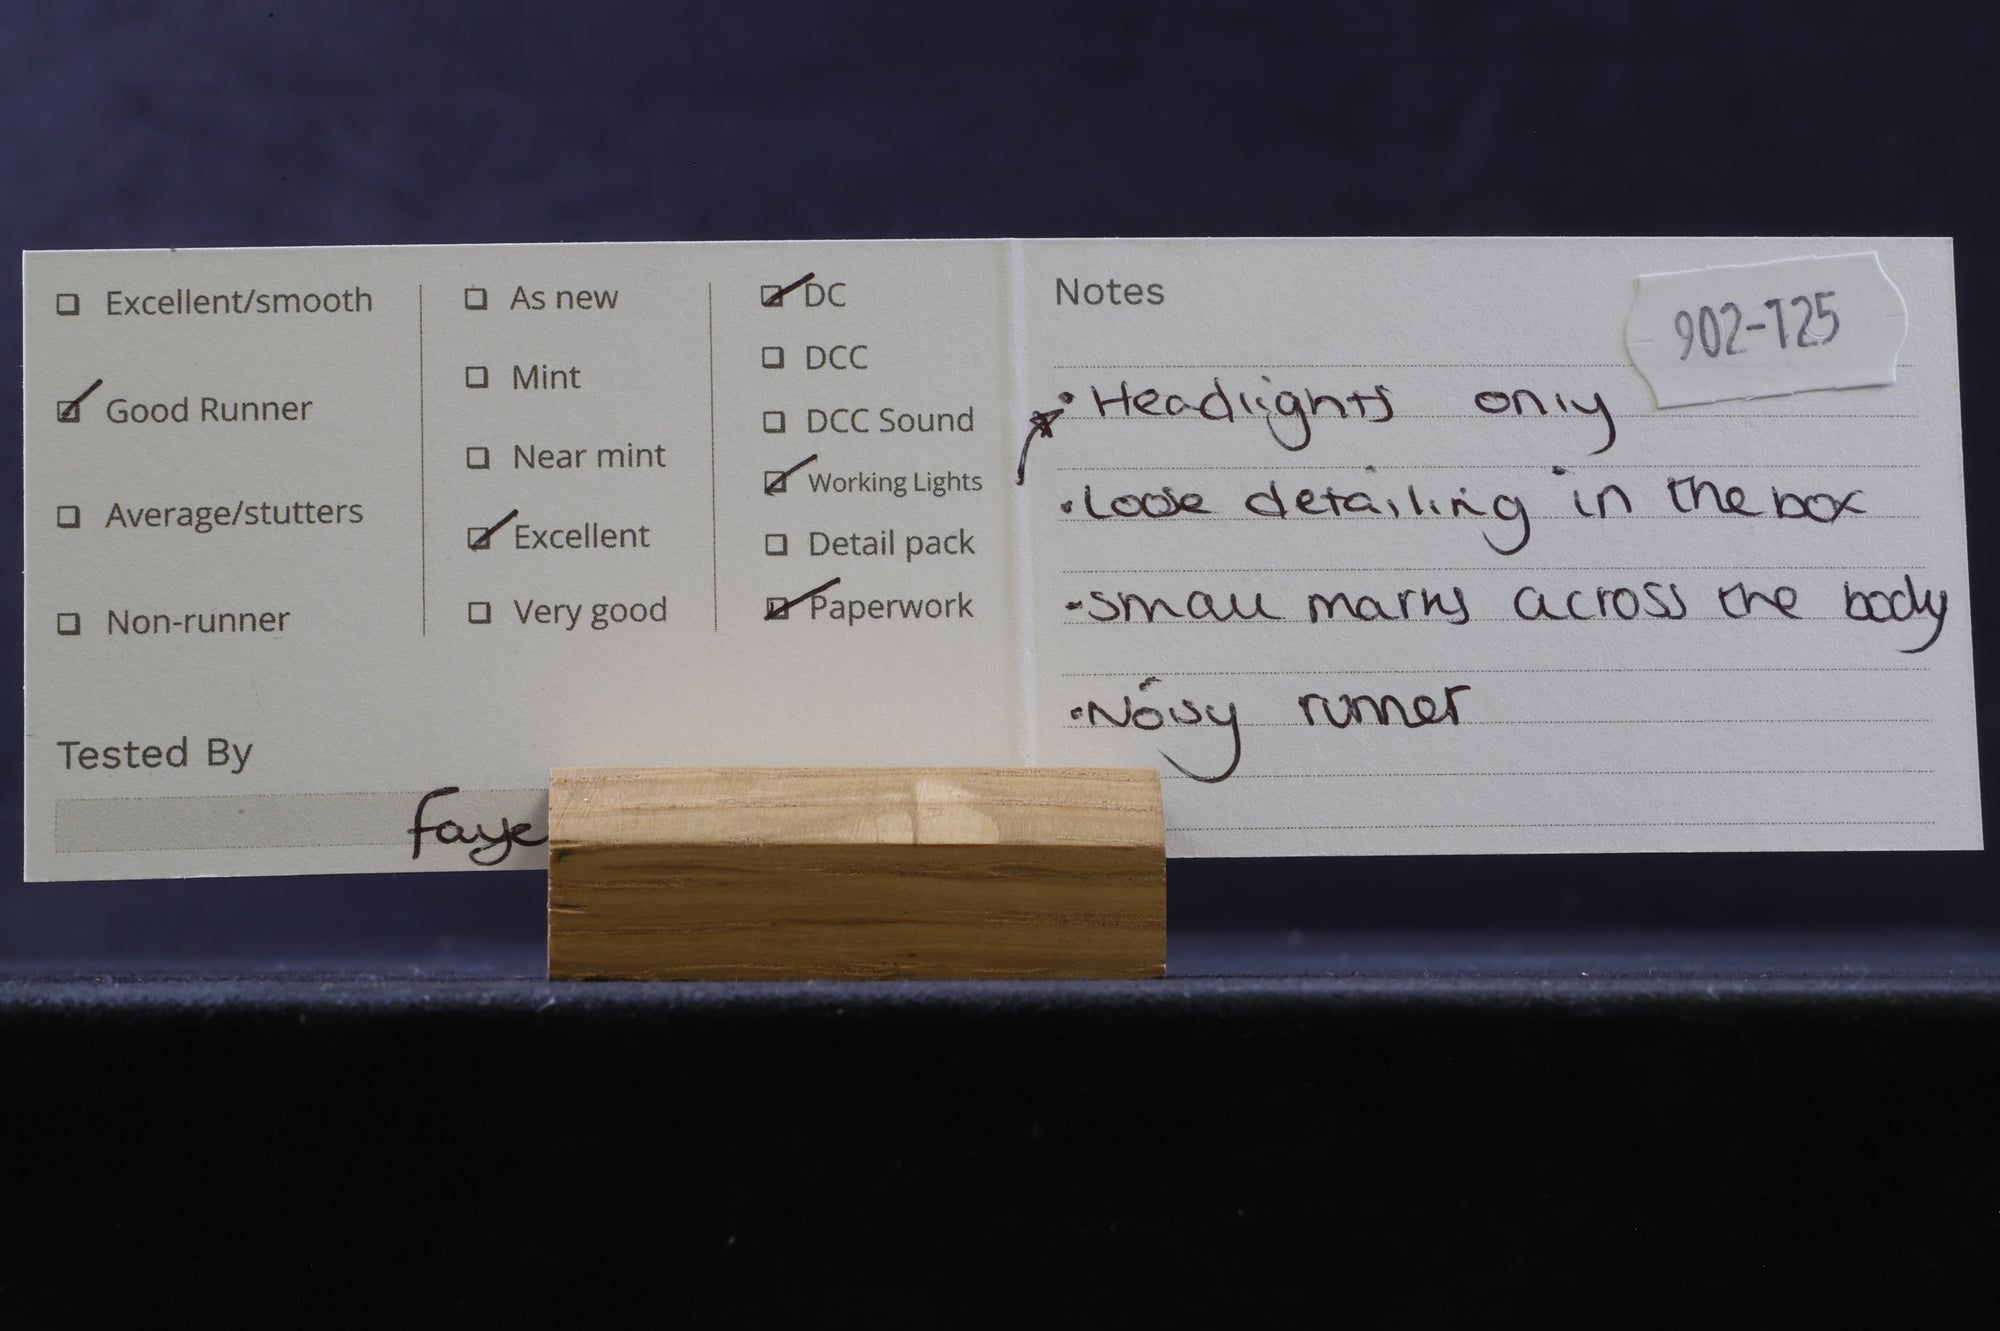 ☐ Excellent/smooth
☑ Good Runner
☐ Average/stutters
☐ Non-runner
☐ As new
☐ Mint
☐ Near mint
☑ Excellent
☐ Very good
☑ DC
☐ DCC
☐ DCC Sound
☑ Working Lights
☐ Detail pack
☑ Paperwork
Tested By
Faye
Notes
902-725
• Headlights only
• Loose detailing in the box
• small marks across the body
• Noisy runner